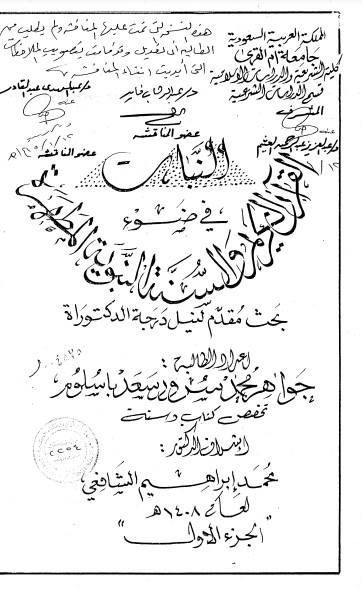 المملكة العربية السعودية
جامعة أم القرى
كلية الشريعة والدراسات الإسلامية
قسم الدراسات الشرعية
هذه النسخة التي تمت عليها المناقشة ولم يطلب من
الطالبة أي تعديل
التي أبديت أثناء المناقشة
المشرف
عضو المناقشة
عضو المناقشة
النبات
في ضوء
القرآن الكريم والسنة النبوية المطهرة
بحث مقدم لنيل درجة الدكتوراة
إعداد الطالبة :
جواهر محمد سرور سعد باسلوم
تخصص كتاب وسنة
إشراف الدكتور :
محمد إبراهيم الشافعي
لعام ١٤٠٨ هـ
"الجزء الأول"